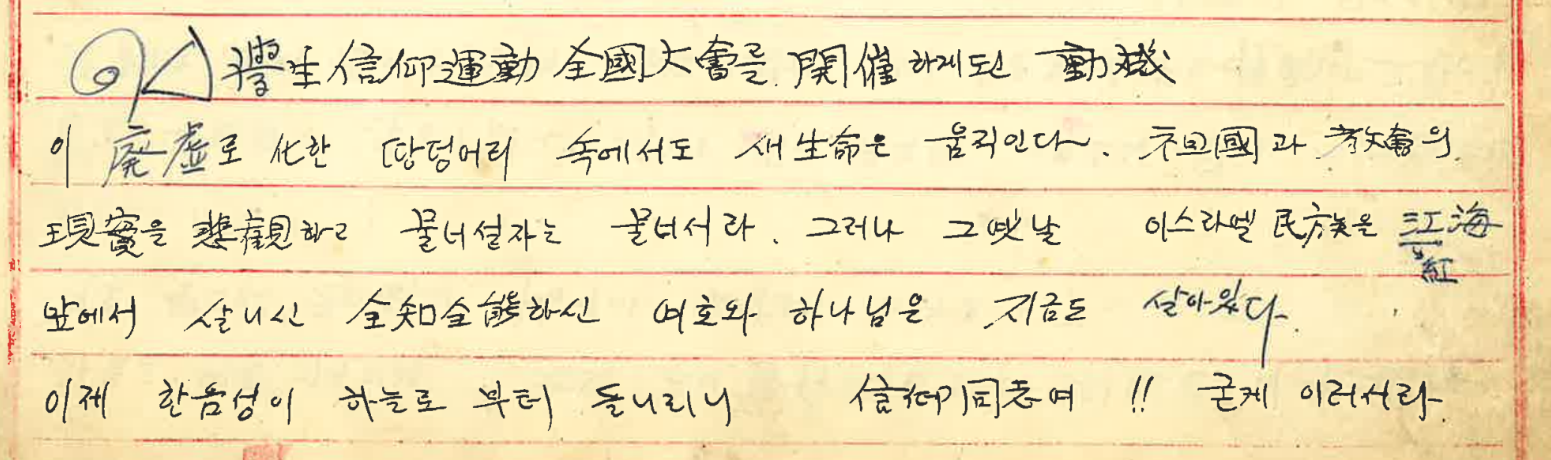 學生信仰運動 全國大會를 開催하게된 動機
이 廢虛로 化한 땅덩어리 속에서도 새生命은 움직인다. 祖國과 敎會의
現實을 悲觀하고 물너설자는 물너서라. 그러나 그 옛날 이스라엘 民族은 江海
紅
앞에서 살니신 全知全能하신 여호와 하나님은 지금도 살아있다.
이제 한음성이 하늘로 부터 들니리니 信仰同志여 !! 굳게 이러서라